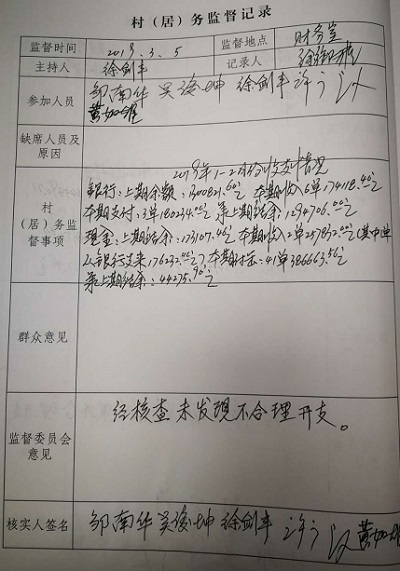 村（居）务监督记录
监督时间 2019.3.5 监督地点 财务室
主持人 徐剑丰 记录人 徐
参加人员 邹南华 吴海坤 徐剑丰 许
黄如雄
缺席人员及
原因
2019年1-2月份收支情况
银行：上期余额：1300821.60元 本期收入6单174118.40元
本期支付：3单180234.00元 累上期结余：1294706.00元
村
（居）务监
督事项
现金：上期结余：173107.46元 本期收入2单257832.00元（其中单
从银行支来176232.00元）本期付出：41单386663.56元
累上期结余：44275.90元
群众意见
经核查未发现不合理开支。
监督委员会
意见
核实人签名 邹南华 吴海坤 徐剑丰 许 黄如雄